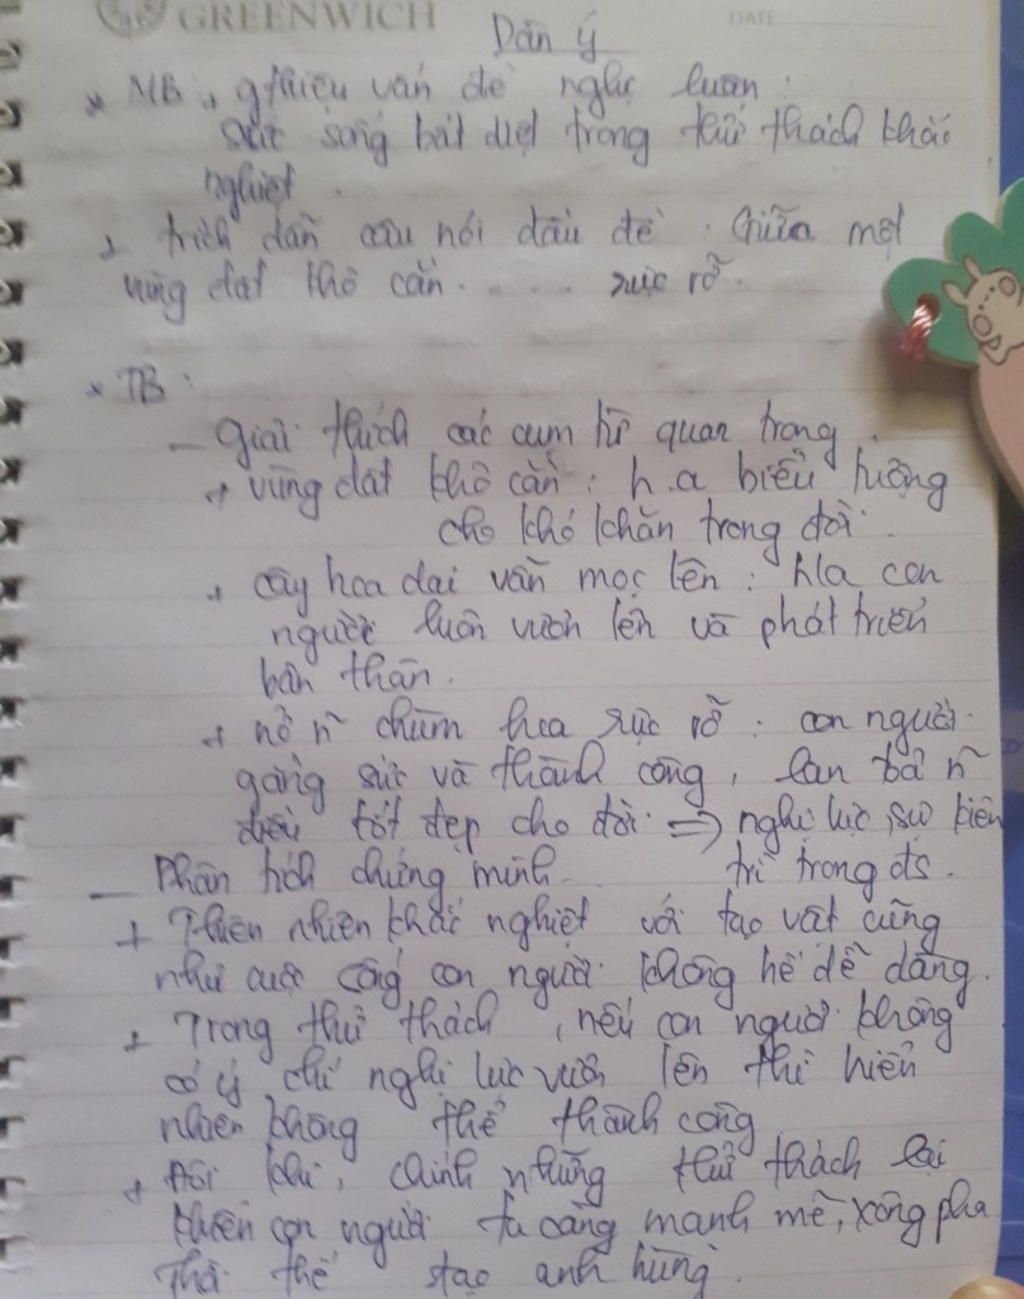 GREENWICH
DATE
Dàn ý
* MB + gthiệu vấn đề nghị luận :
sức sống bất diệt trong thử thách khắc
nghiệt.
+ trích dẫn câu nói đầu đề : Giữa một
vùng đất khô cằn. . . . . rực rỡ.
* TB :
- Giải thích các cụm từ quan trọng.
+ vùng đất khô cằn : h.a biểu tượng
cho khó khăn trong đời.
+ cây hoa dại vẫn mọc lên : h/a con
người luôn vươn lên và phát triển
bản thân.
+ nở n~ chùm hoa rực rỡ : con người
gắng sức và thành công, lan toả n~
điều tốt đẹp cho đời => nghị lực, sự kiên
- Phân tích chứng minh trì trong đs.
+ Thiên nhiên khắc nghiệt với tạo vật cũng
như cuộc sống con người không hề dễ dàng.
+ Trong thử thách, nếu con người không
có ý chí nghị lực vươn lên thì hiển
nhiên không thể thành công
+ Đôi khi, chính những thử thách lại
khiến con người ta càng mạnh mẽ, xông pha
Thời thế tạo anh hùng.